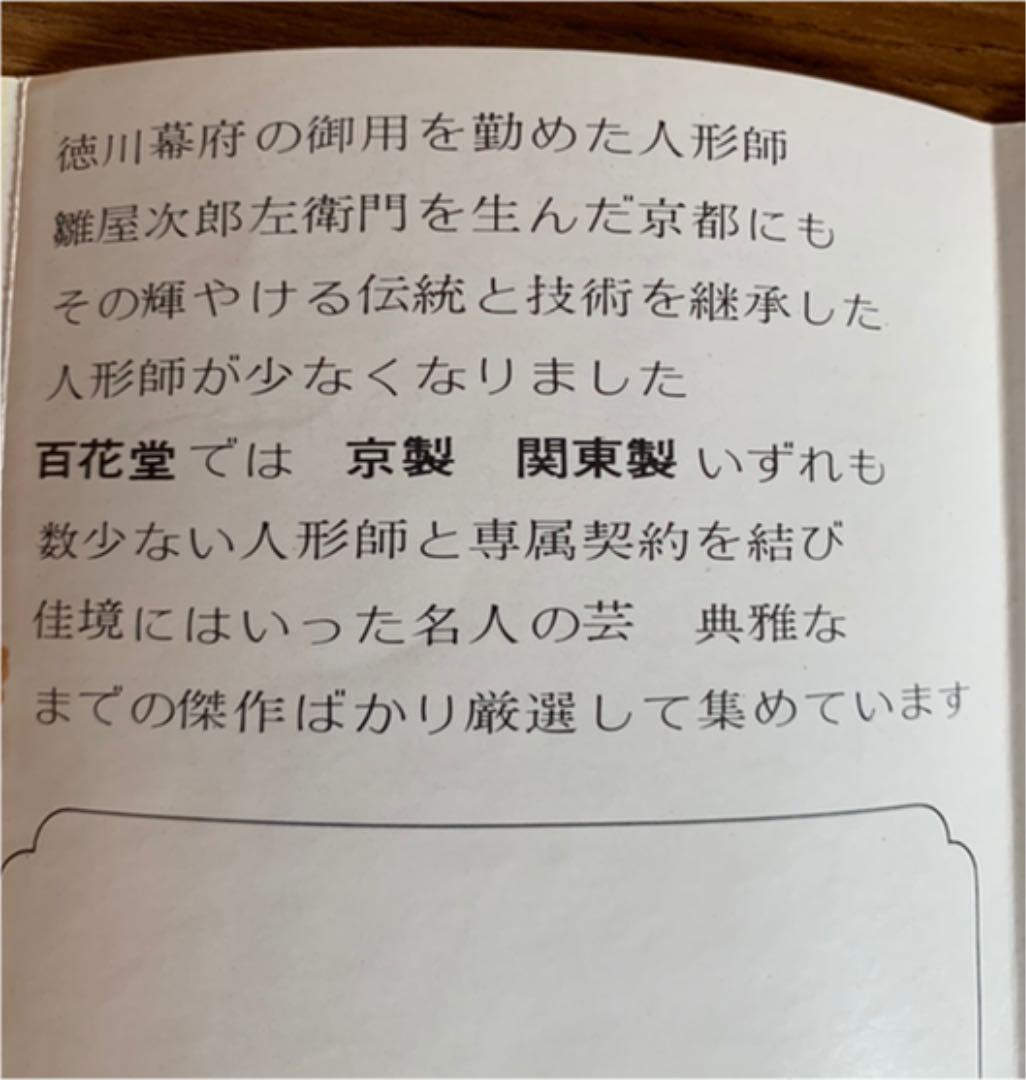 徳川幕府の御用を勤めた人形師
雛屋次郎左衛門を生んだ京都にも
その輝やける伝統と技術を継承した
人形師が少なくなりました
百花堂では　京製　関東製いずれも
数少ない人形師と専属契約を結び
佳境にはいった名人の芸　典雅な
までの傑作ばかり厳選して集めています